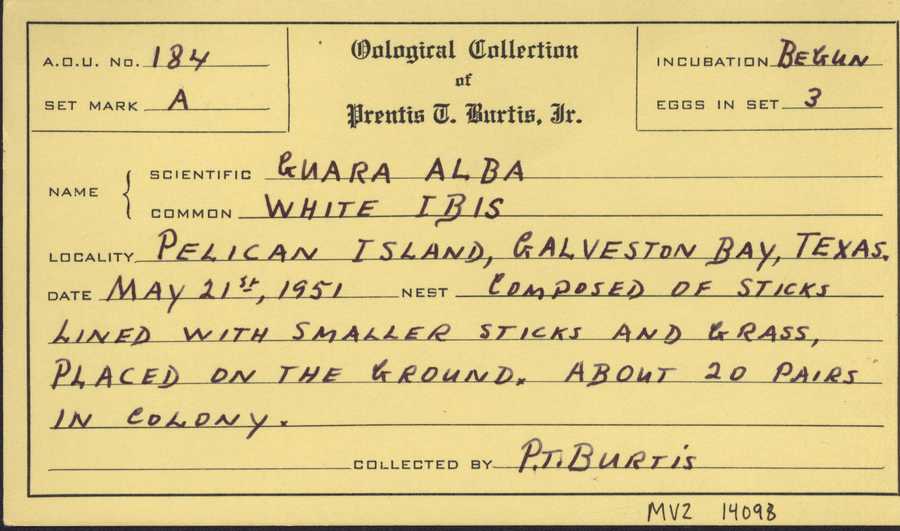 A.O.U. No. 184
SET MARK A
Oological Collection
of
Prentis T. Burtis, Jr.
INCUBATION BEGUN
EGGS IN SET 3
NAME
SCIENTIFIC GUARA ALBA
COMMON WHITE IBIS
LOCALITY PELICAN ISLAND, GALVESTON BAY, TEXAS.
DATE MAY 21st, 1951 NEST COMPOSED OF STICKS
LINED WITH SMALLER STICKS AND GRASS,
PLACED ON THE GROUND. ABOUT 20 PAIRS
IN COLONY.
COLLECTED BY P.T. BURTIS
MVZ 14098